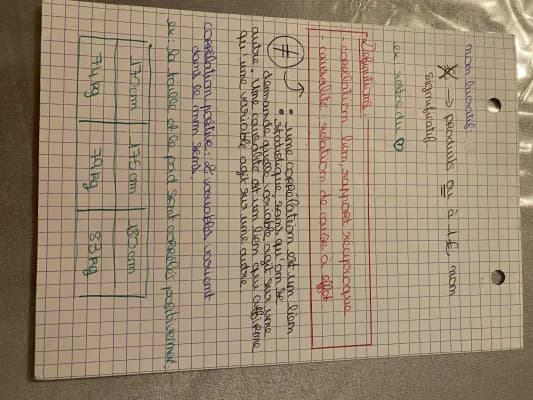 non lucratif :
X → produits ou à 1€ non
significatif
ex : restos du ♡
Définitions :
- corrélation : lien, rapport réciproque
- causalité : relation de cause à effet
≠ : une corrélation est un lien
statistique sans qu'on se
demande quelle variable agit sur une
autre. Une causalité est un lien qui affirme
qu'une variable agit sur une autre.
corrélation positive : 2 variables varient
dans le même sens.
ex : la taille et le poid sont corrélés positivement.
170cm 175cm 180cm
74kg 79kg 83kg